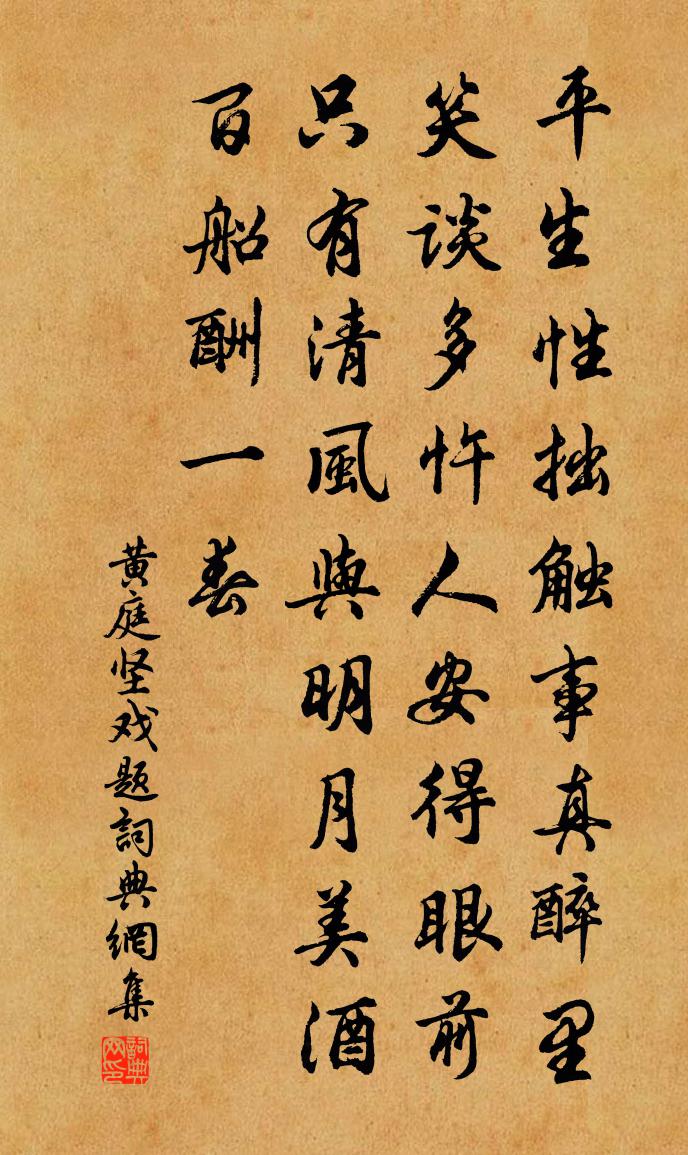 平生性拙触事真醉里
笑谈多忤人安得眼前
只有清風與明月美酒
百船酬一春
黄庭坚戏题詞典網集
詞典網印